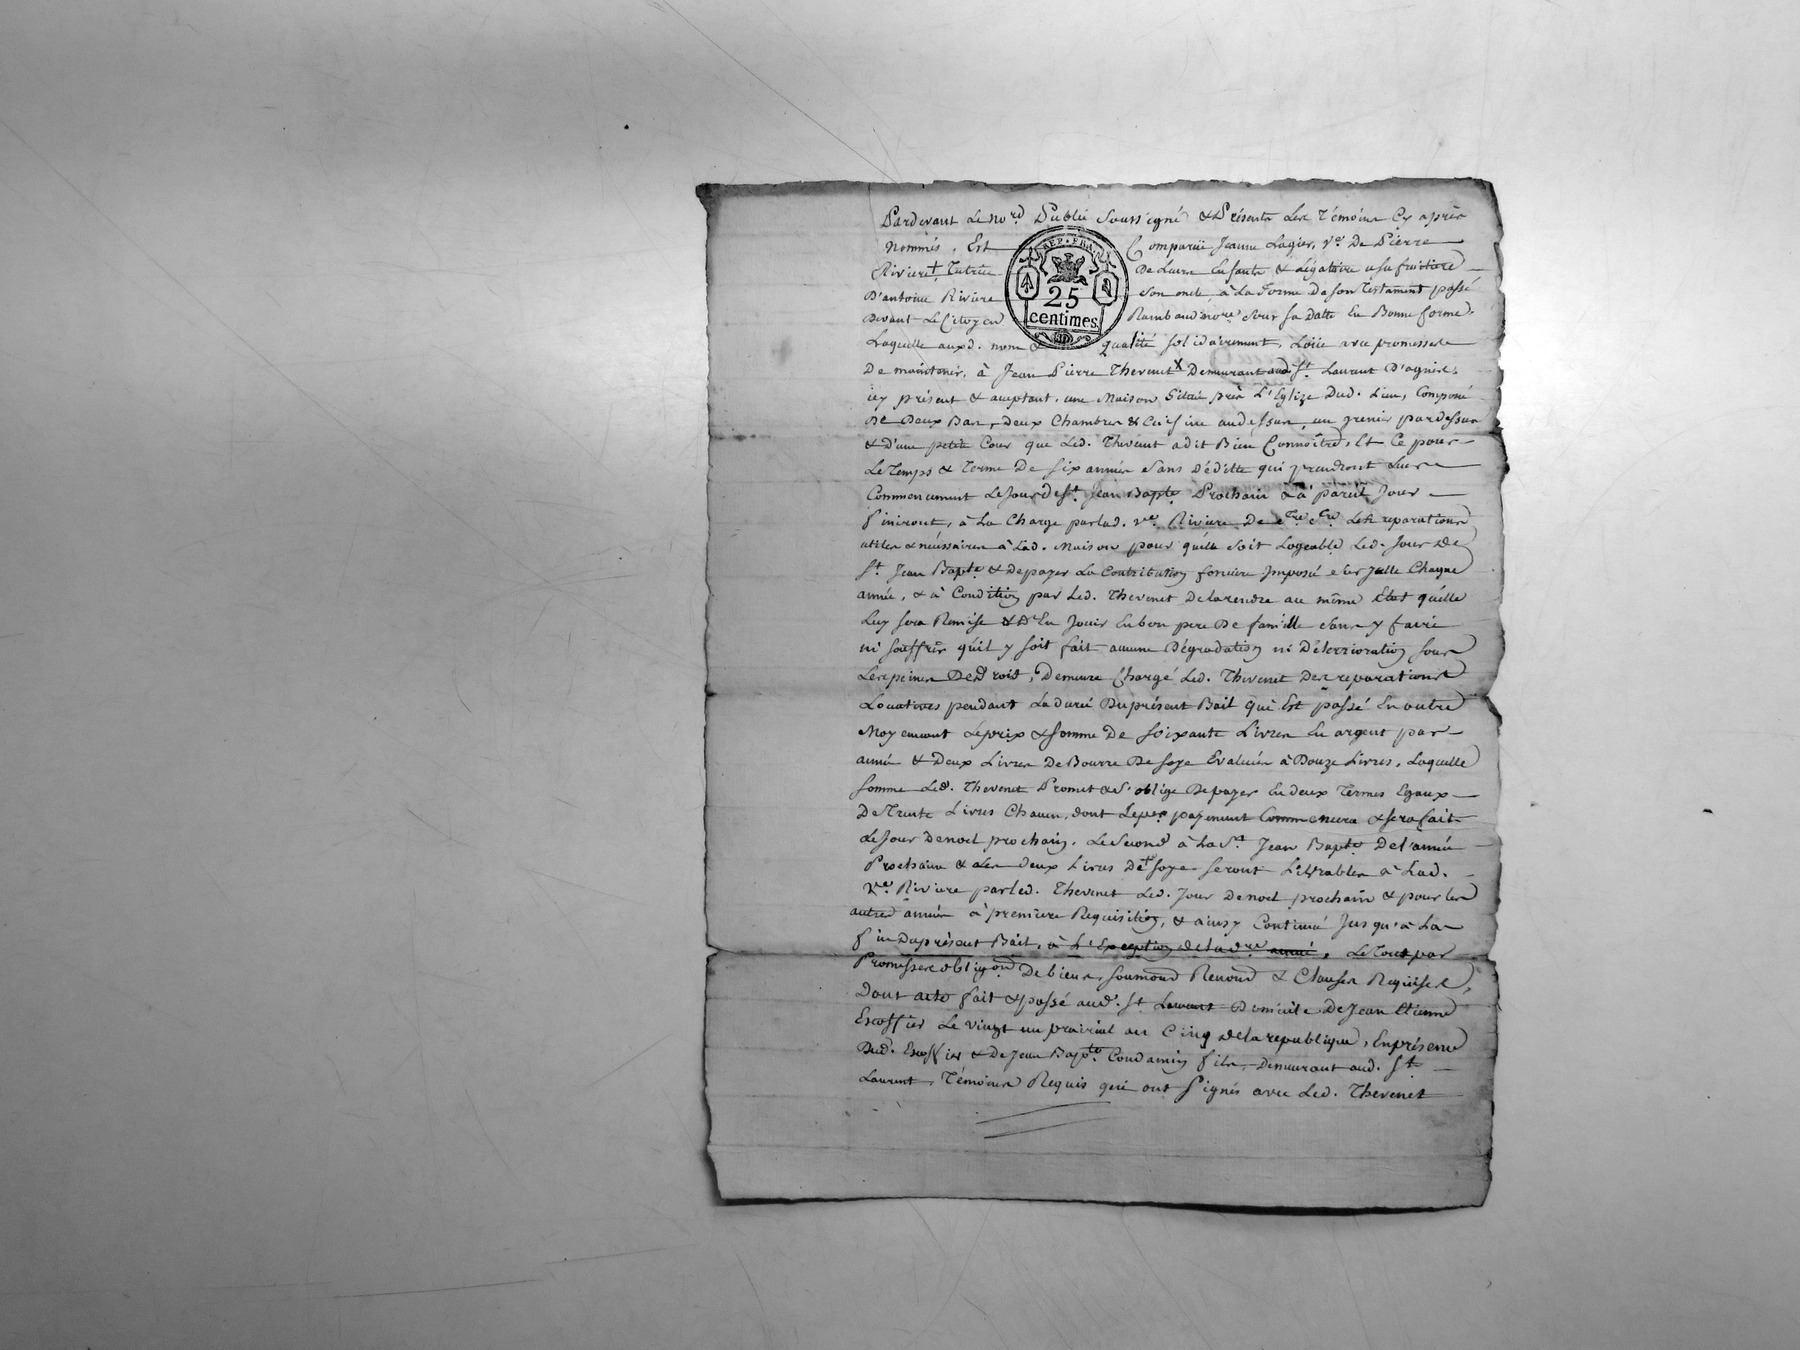 Pardevant Le no.rd Public Soussigné & Présents Les Témoins Cy après
nommés, Est Comparüe Jeanne Lagier, v.e De Pierre
Riviere Tutrice De Leurs Enfants & Légataire usufruitiere
D'antoine Riviere son oncle à La Forme De son Testament passé
Devant Le Citoyen Rambaud no.re sous sa Datte En Bonne forme.
REP. FRA.
25
centimes
Laquelle auxd. nom & qualité solidairement, Loüe avec promesse
De maintenir, à Jean Pierre Thevenet Demeurant aud. S.t Laurent D'agnis,
icy présent & acceptant, une Maison Située près L'Eglize Dud. Lieu, Composée
De Deux Bas, Deux Chambres & Cuisine audessus, un grenier pardessus
& D'une petite Cour que Led. Thevenet a dit Bien Connoître, Et Ce pour
Le Temps & Terme De six années sans Déditte qui prendront Leur
Commencement Le Jour de S.t Jean Bapt.e Prochain & à pareil Jour
finiront, à La Charge par Lad. v.e Riviere De Les reparations
utiles & néssaires à Lad. Maison pour quelle soit Logeable Led. Jour De
S.t Jean Bapt.e & De payer La Contribution fonciere Imposée sur Jcelle Chaque
année, & à Condition par Led. Thevenet De La rendre au même Etat quelle
Luy sera Remise & D'En Jouir En bon pere De famille sans y faire
ni souffrir qu'il y soit fait aucune Dégradation ni Déterrioration sous
Les peines De Droit, Demeure Chargé Led. Thevenet Des reparations
Locatives pendant La durée Du présent Bail qui Est passé En outre
Moyennant Le prix & somme De soixante Livres En argent par
année & Deux Livres De Bourre De soye Evaluées à Douze Livres, Laquelle
somme Led. Thevenet Promet & S'oblige De payer En deux Termes Egaux
De Trente Livres Chacun, dont Le p.er payement Commencera & sera fait
Le Jour De noel prochain, Le Second à La S.t Jean Bapt.e De L'année
Prochaine & Les Deux Livres De soye seront Livrables à Lad.
V.e Riviere par Led. Thevenet Led. Jour De noel prochain & pour Les
autres années à premiere Requisition, & ainsy Continué Jusqu'à La
fin Du présent Bail, à L'Exception de La d.re année, Le Tout par
Promesses obligaon De biens, soumaon Renonon & Clauses Requises,
Dont acte fait & passé aud. S.t Laurent Domicile De Jean Etienne
Escoffier Le vingt un prairial an Cinq de La republique, En présence
Dud. Escoffier & De Jean Bap.te Condamin fils, Demeurant aud. S.t
Laurent, Témoins Requis qui ont Signés avec Led. Thevenet